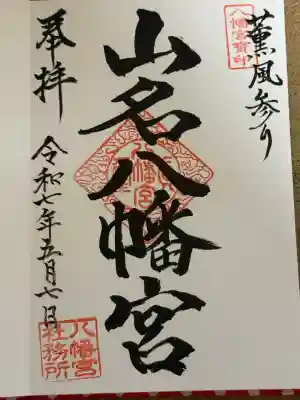 薫風参り
八幡宮寶印
山名八幡宮
奉拝
令和七年五月七日
八幡宮
社務所